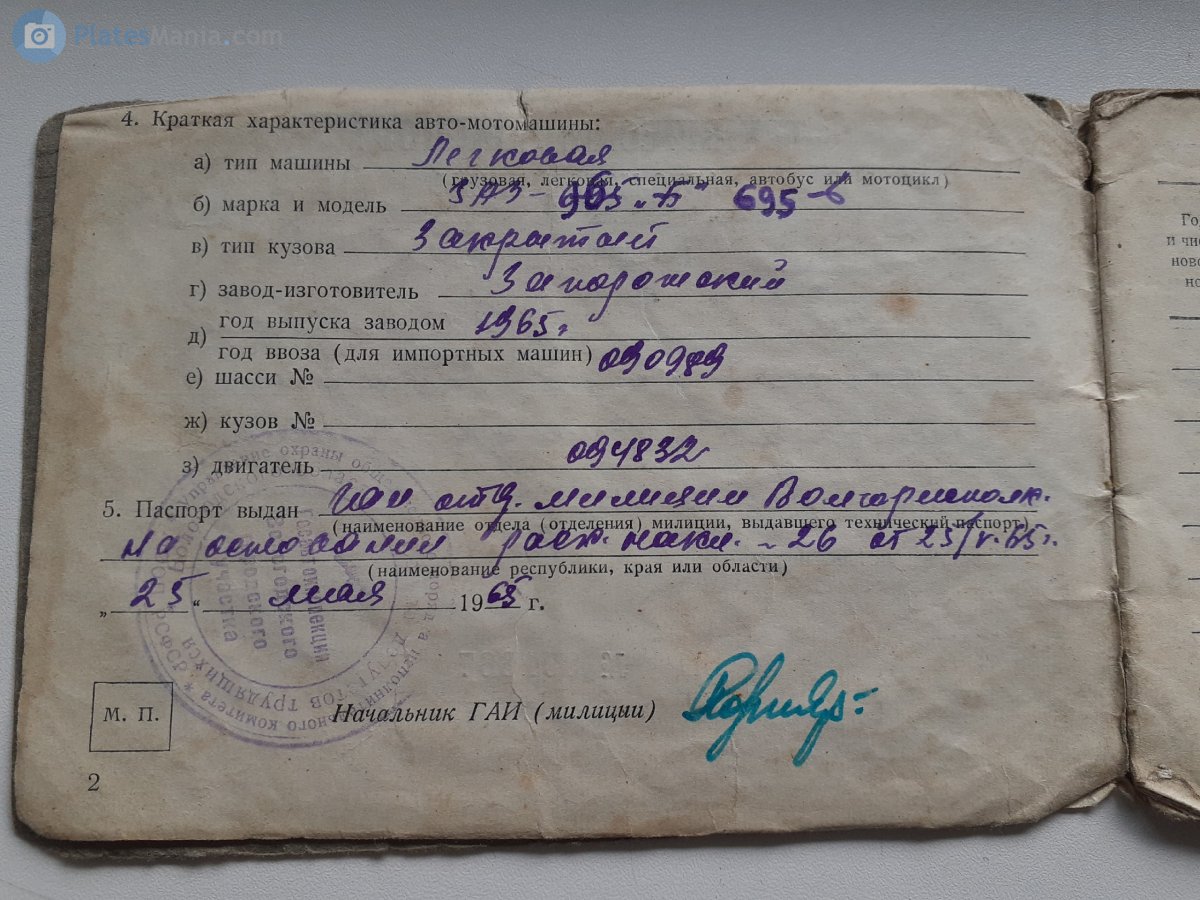 PlatesMania.com
4. Краткая характеристика авто-мотомашины:
а) тип машины Легковая
(грузовая, легковая, специальная, автобус или мотоцикл)
б) марка и модель ЗАЗ-965 „Б" 695-б
в) тип кузова Закрытый
г) завод-изготовитель Запорожский
д) год выпуска заводом 1965г
год ввоза (для импортных машин)
е) шасси № 090989
ж) кузов №
з) двигатель 094832
5. Паспорт выдан ГАИ отд. милиции
(наименование отдела (отделения) милиции, выдавшего технический паспорт)
На основании накл. 26 от 25/V-65г.
(наименование республики, края или области)
„25" мая 1965 г.
М. П.
Начальник ГАИ (милиции)
2
Управление охраны
комитета
депутатов трудящихся
РСФСР
Госавтоинспекции
участка
Го
и чи
ново
но